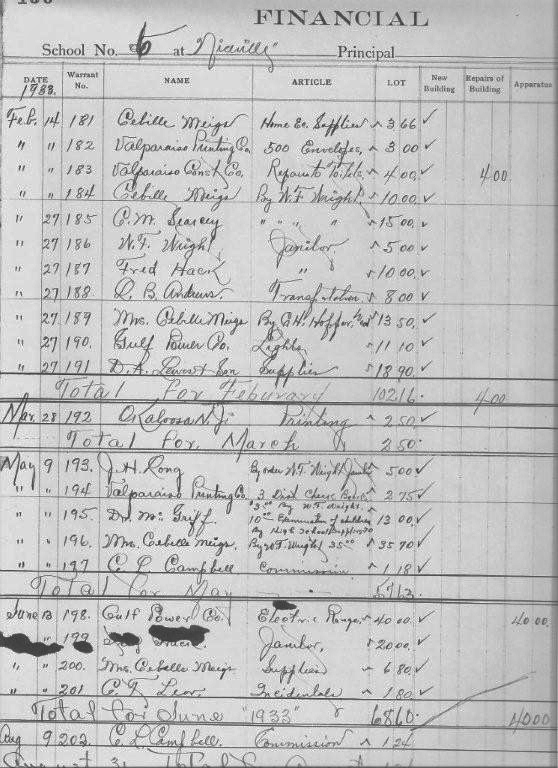 FINANCIAL
School No. 6 at "Niceville" Principal
DATE Warrant No. NAME ARTICLE LOT New Building Repairs of Building Apparatus
1933.
Feb. 14 181 Cebille Meigs Home Ec. Supplies 3 66
" " 182 Valparaiso Printing Co. 500 Envelopes, 3 00
" " 183 Valparaiso Const Co. Repairs 4 00 4 00
" " 184 Cebille Meigs By W.F. Wright, 10 00
" 27 185 C. M. Searcy " " " " 15 00
" 27 186 W.F. Wright Janitor 5 00
" 27 187 Fred Hack " 10 00
" 27 188 R. B. Andrews. Transportation 8 00
" 27 189 Mrs. Cebille Meigs By C.H. Hopper, 13 50
" 27 190. Gulf Power Co. Lights 11 10
" 27 191 D. A. Lewis & Son Supplies 18 90
Total for Feburary 102 16 4 00
Mar. 28 192 Okaloosa N. J. Printing 2 50
Total for March 2 50
May 9 193. J. H. Long By order W.F. Wright Janitor 5 00
" " 194 Valparaiso Printing Co. 3 Dist Charge 2 75
" " 195. Dr. Mc Griff. $3.00 By W.F. Wright. 10.00 Examination of children By High School 13 00
" " 196. Mrs. Cebelle Meigs. By W.F. Wright 35.00 35 70
" " 197 C. L. Campbell Commission 1 18
Total for May 57 63
June 13 198. Gulf Power Co. Electric Range, 40 00 40 00
" 199 Janitor, 20 00
" " 200. Mrs. Cebelle Meigs Supplies 6 80
" " 201 C. F. Incidentals 1 80
Total for June "1933" 68 60 40 00
Aug 9 202. C. L. Campbell. Commission 1 24
August 31 Total